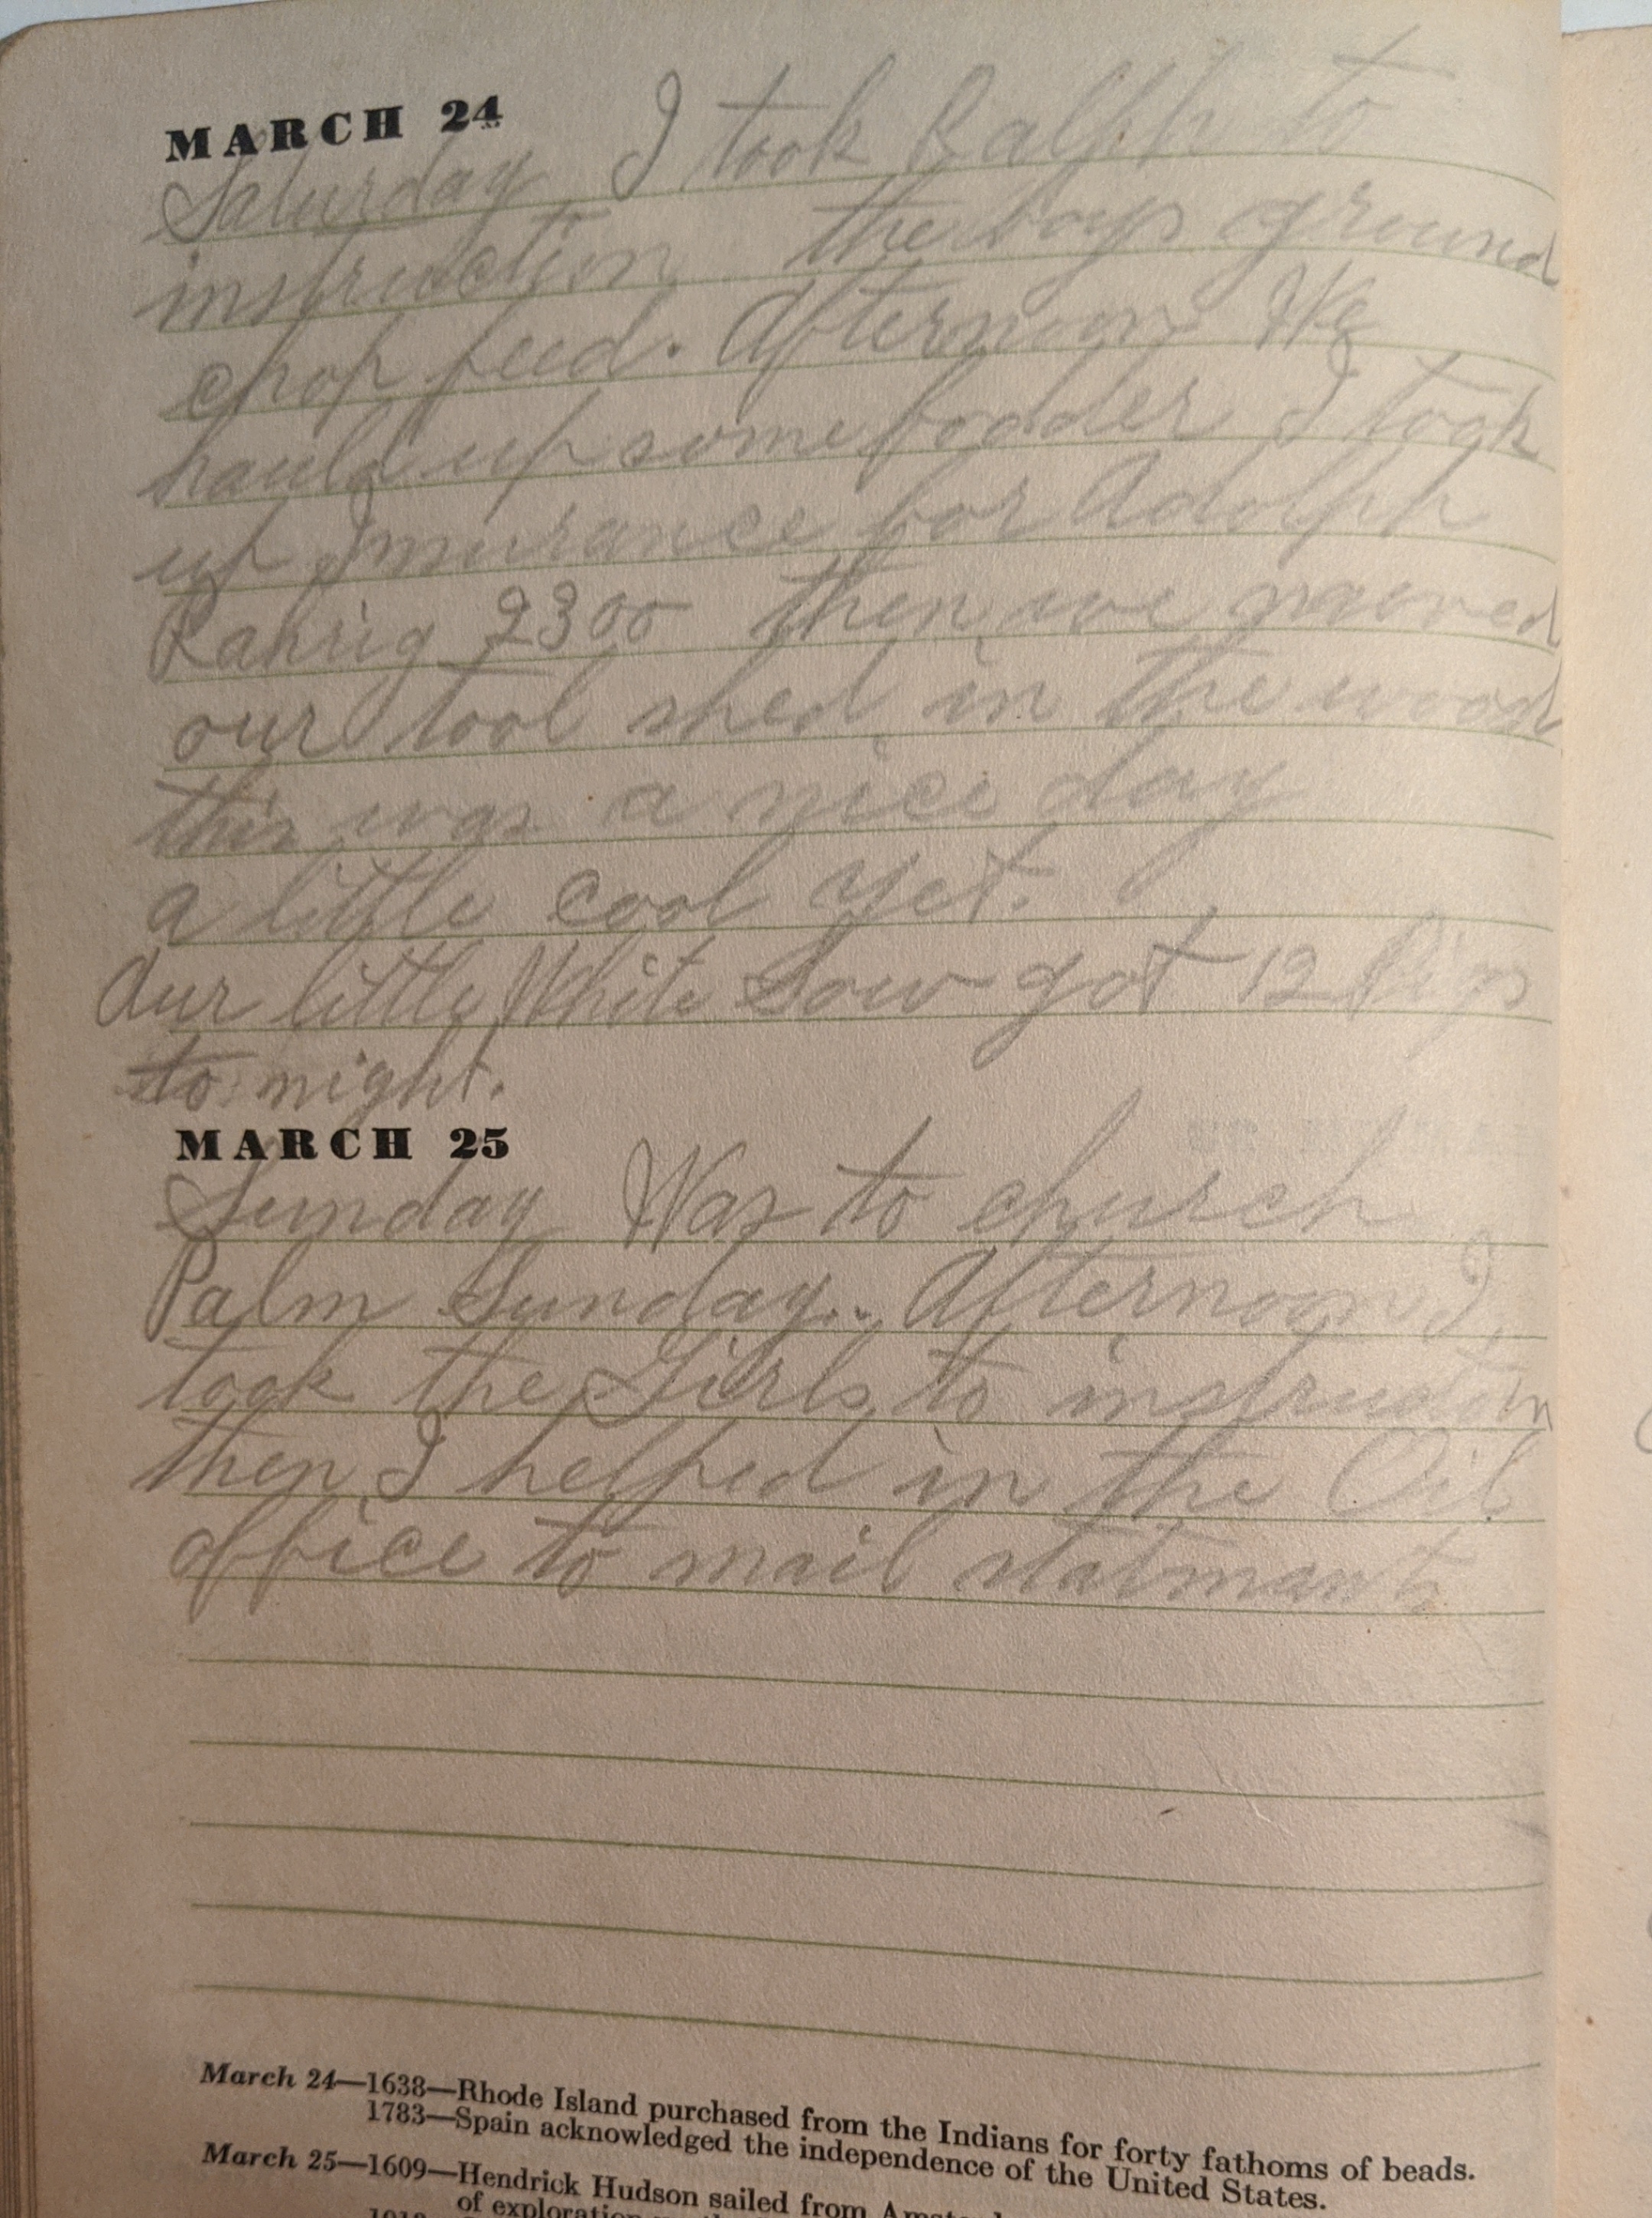 MARCH 24
Saturday I took Ralph to
instruction the boys ground
chop feed. Afternoon We
hauld up some fodder I took
up Insurance for Adolph
2300 then we mooved
our tool shed in the wood
this was a nice day
a little cool yet.
Our little White Sow got 12 Pigs
to night.
MARCH 25
Sunday Was to church
Palm Sunday.. Afternoon I
took the Girls to instruction
then I helped in the Oil
office to mail statmants
March 24—1638—Rhode Island purchased from the Indians for forty fathoms of beads.
1783—Spain acknowledged the independence of the United States.
March 25—1609—Hendrick Hudson sailed from
of exploration